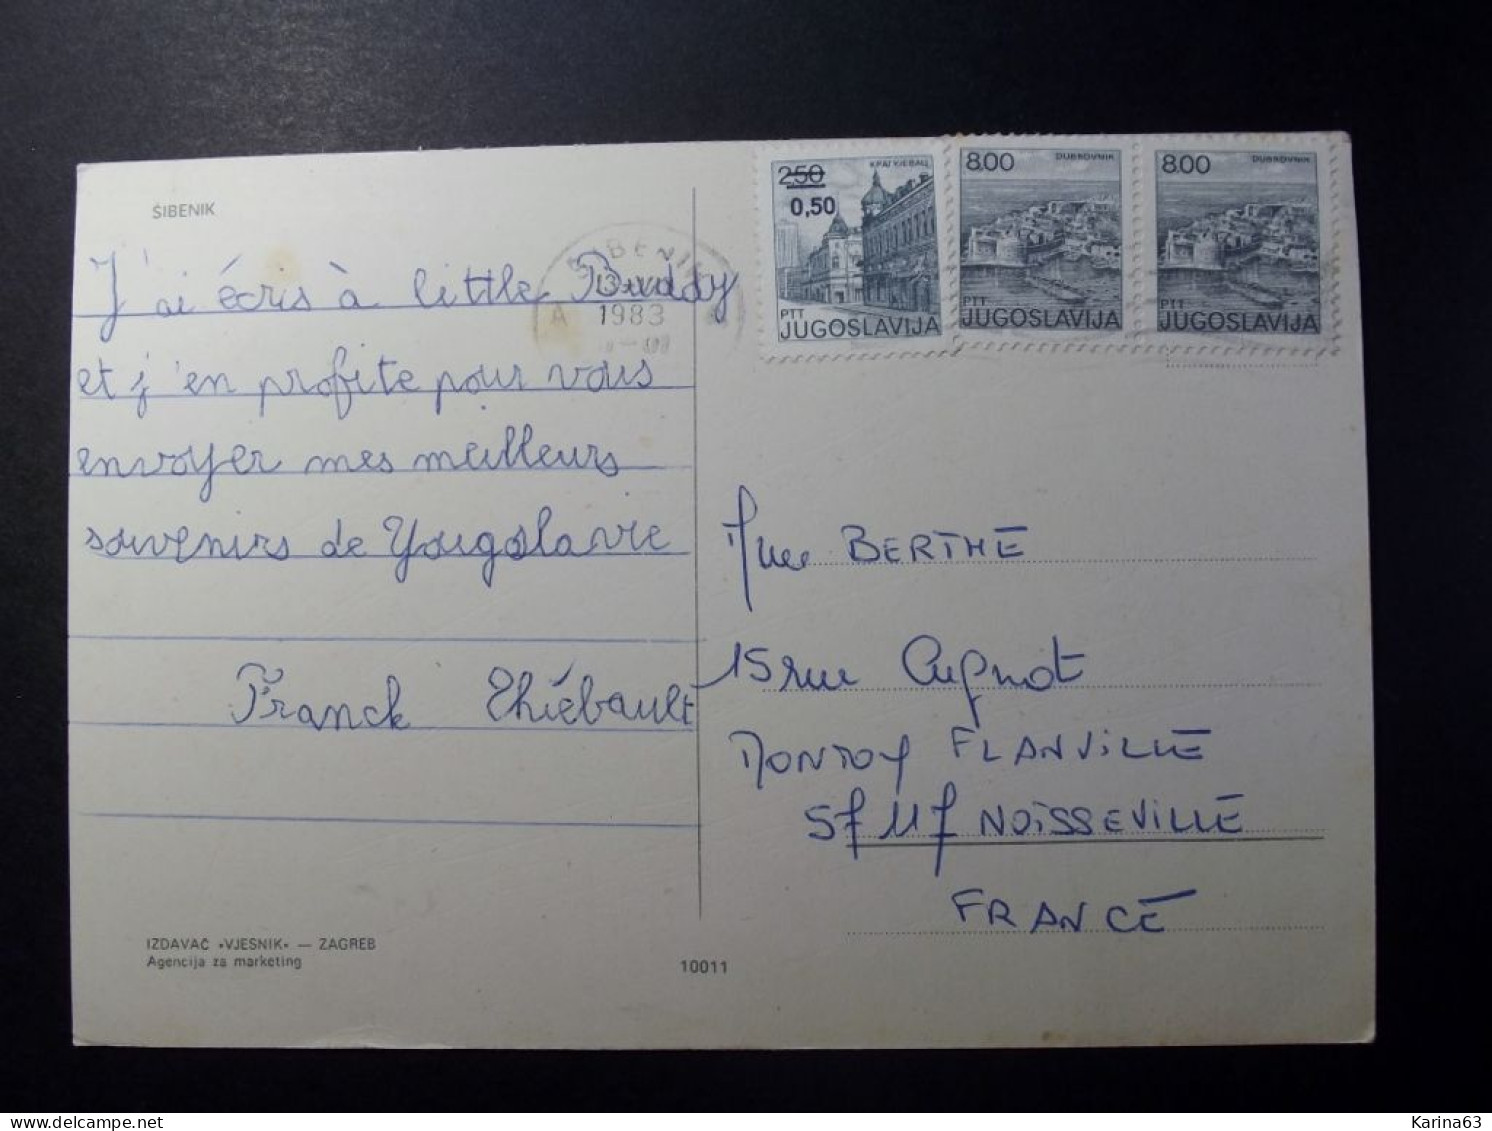 ŠIBENIK
J'ai écris à little Buddy
et j'en profite pour vous
envoyer mes meilleurs
souvenirs de Yougoslavie
Franck Thiébault
ŠIBENIK
1983
A
250
0,50
КРАГУЈЕВАЦ
PTT
JUGOSLAVIJA
8.00 DUBROVNIK
PTT
JUGOSLAVIJA
8.00 DUBROVNIK
PTT
JUGOSLAVIJA
BERTHE
15 rue Cugnot
MONTOY FLANVILLE
NOISSEVILLE
FRANCE
IZDAVAČ »VJESNIK« — ZAGREB
Agencija za marketing
10011
delcampe.net
Karina63